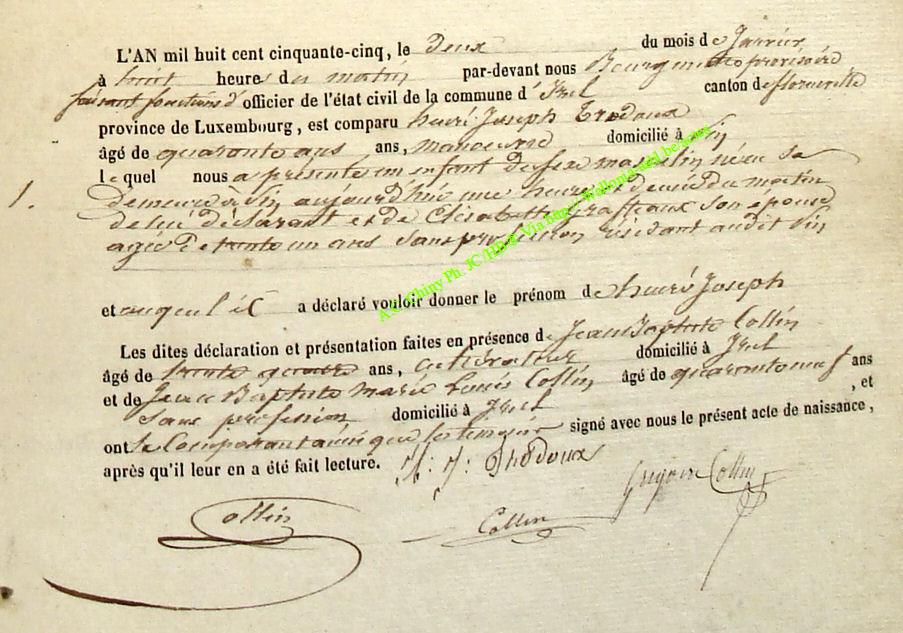 L'AN mil huit cent cinquante-cinq, le deux du mois de Janvier
à huit heures du matin par-devant nous Bourgmestre provisoire
faisant fonctions d'officier de l'état civil de la commune d'Izel canton de florenville
province de Luxembourg, est comparu henri Joseph
âgé de quarante ans ans, manoeuvre domicilié à Pin
lequel nous a présenté un enfant du sexe masculin né en sa
1. demeure à Pin aujourd'hui à une heure et demie du matin
de lui déclarant et de Elisabeth son épouse
agée de trente un ans sans profession résidant audit Pin
et auquel il a déclaré vouloir donner le prénom de henri Joseph
Les dites déclaration et présentation faites en présence de Jean Baptiste Collin
âgé de trente quatre ans, cultivateur domicilié à Izel
et de Jean Baptiste Marie Louis Collin âgé de quarante neuf ans
sans profession domicilié à Izel , et
ont le Comparant ainsi que les témoins signé avec nous le présent acte de naissance,
après qu'il leur en a été fait lecture. H: J:
Grégoire Collin
Collin Collin